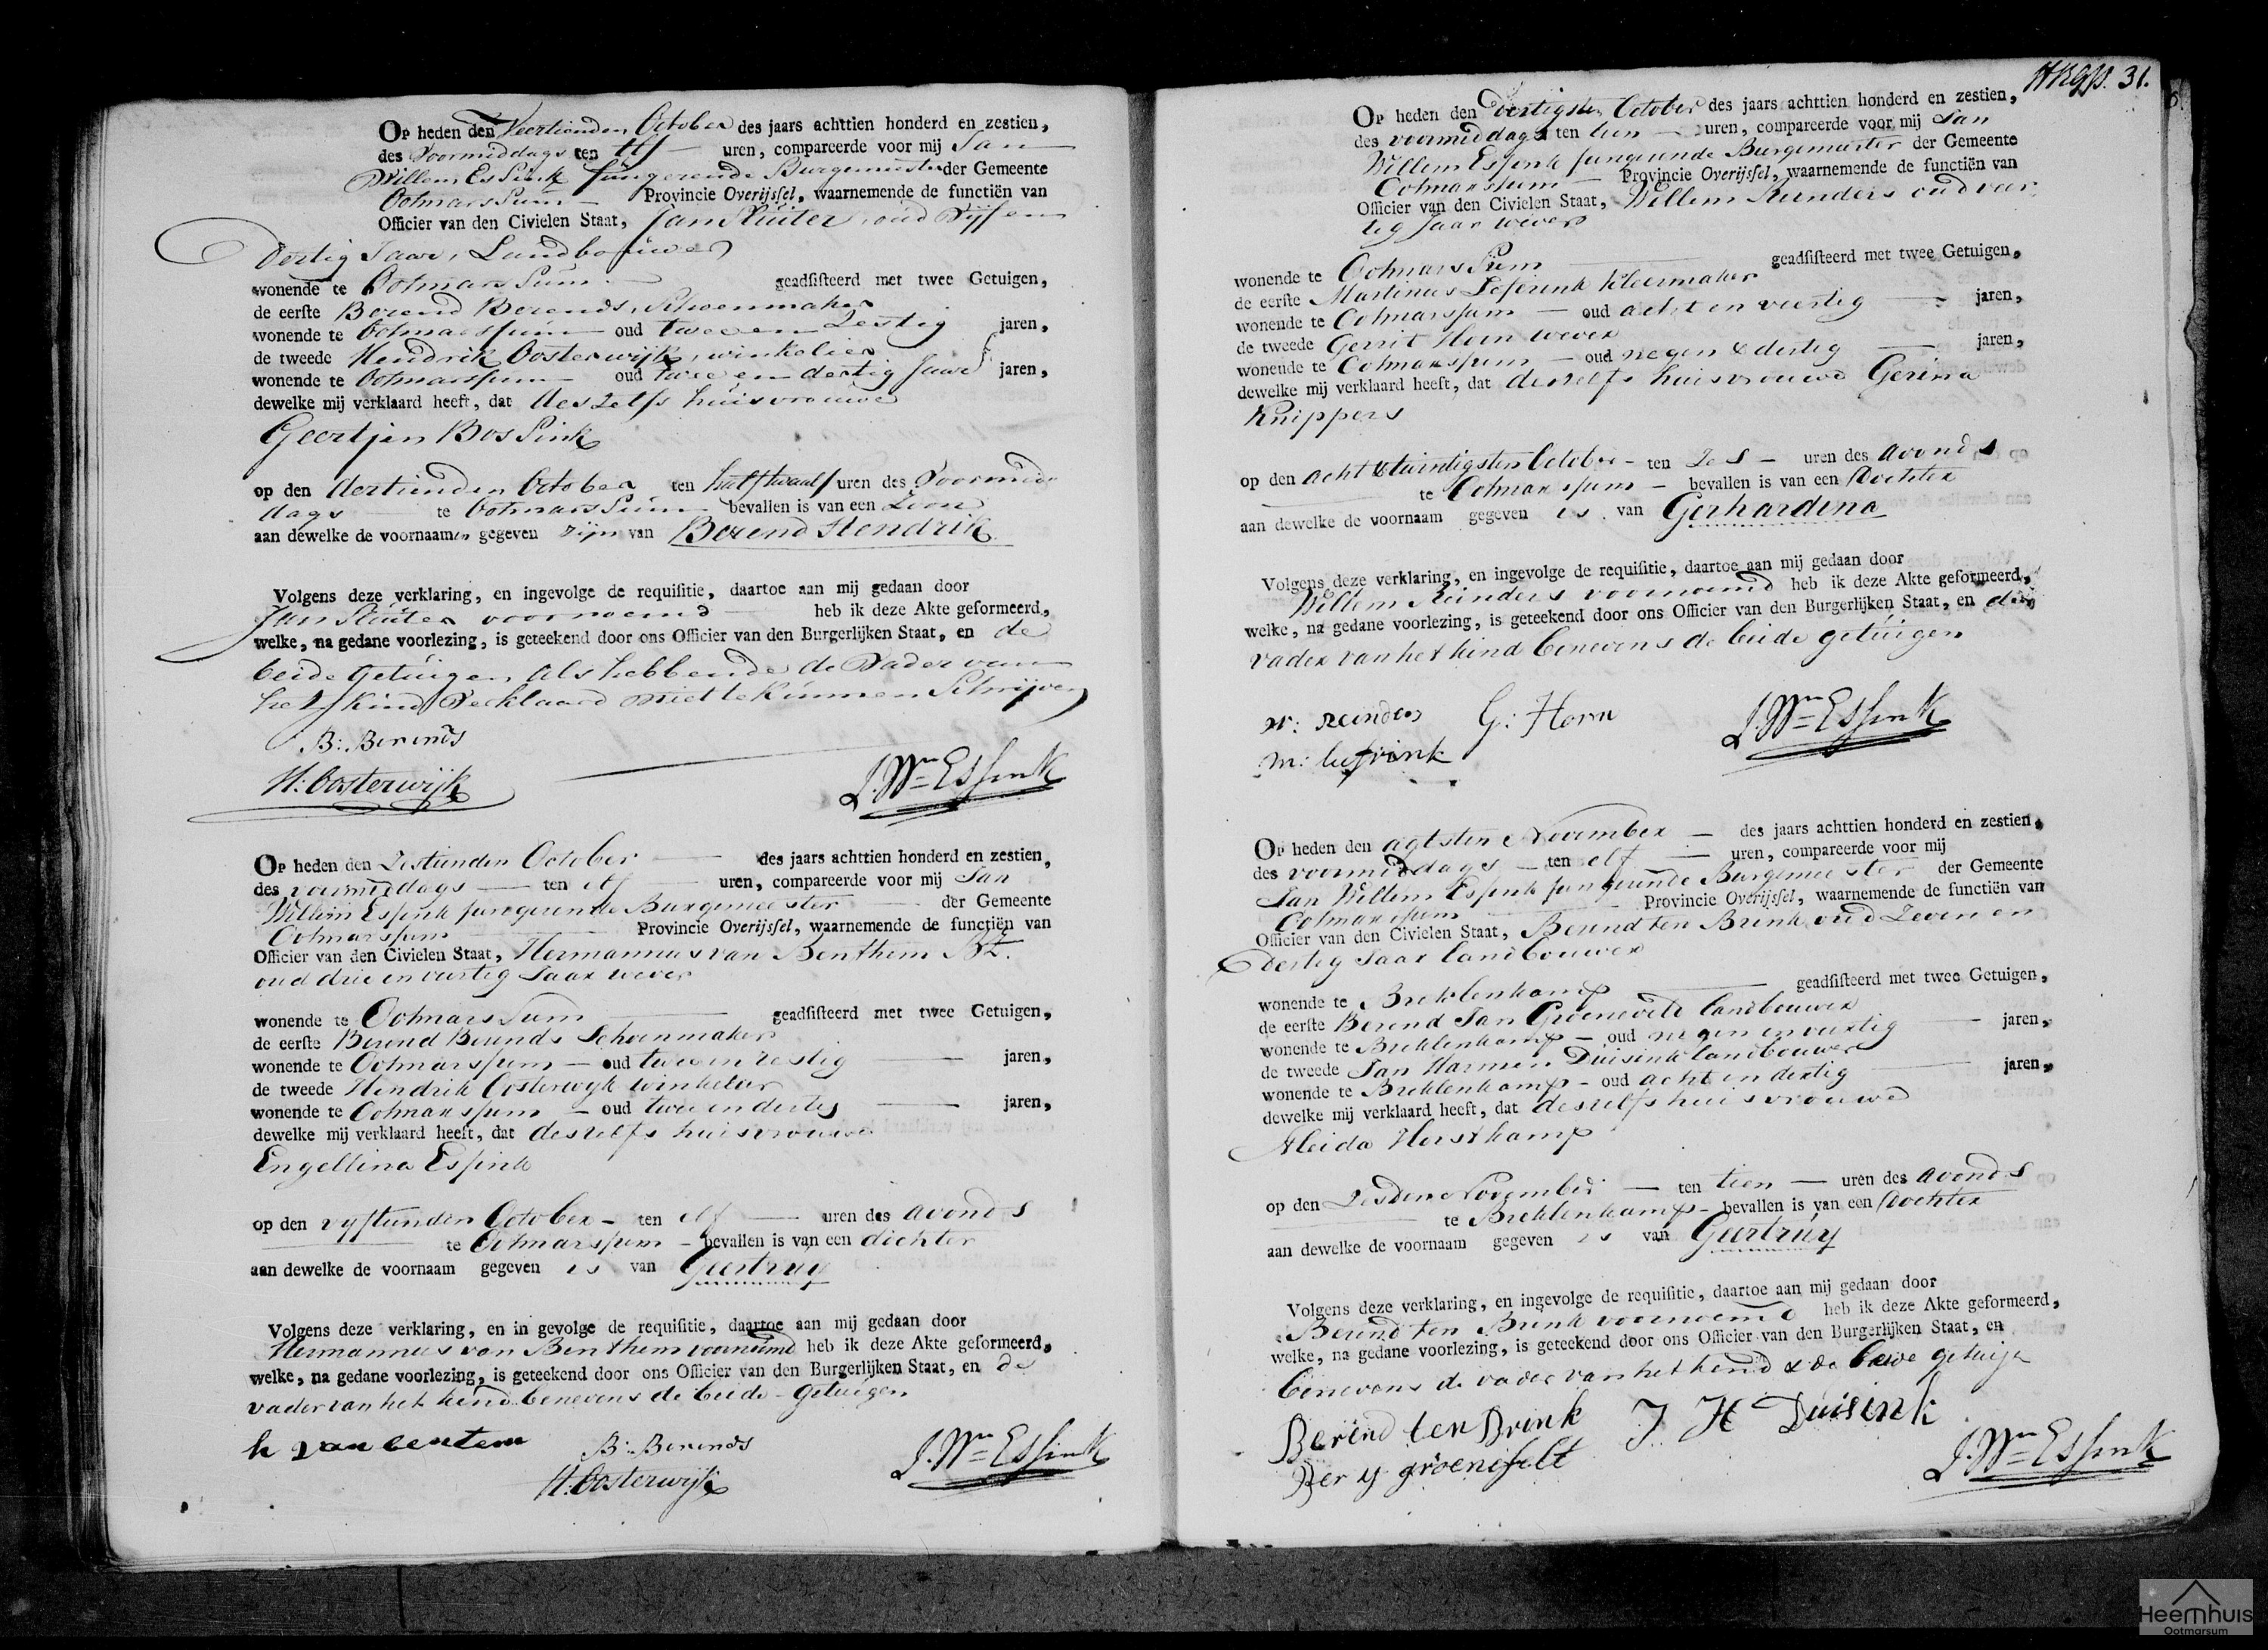 Op heden den Veertienden October des jaars achttien honderd en zestien,
des Voormiddags ten Elf uren, compareerde voor mij Jan
Willem Essink fungerende Burgemeester der Gemeente
Ootmarssum Provincie Overijssel, waarnemende de functiën van
Officier van den Civielen Staat, Jan Sluiter, oud Vijf en
Dertig Jaar, Landbouwer
wonende te Ootmarssum geadsisteerd met twee Getuigen,
de eerste Berend Berends, Schoenmaker
wonende te Ootmarssum oud twee en Zestig jaren,
de tweede Hendrik Oosterwijk, winkelier
wonende te Ootmarssum oud twee en dertig Jaar jaren,
dewelke mij verklaard heeft, dat deszelfs huisvrouwe
Geertjen Bossink
op den dertienden October ten half twaalf uren des Voormid-
dags te Ootmarssum bevallen is van een Zoon
aan dewelke de voornaamen gegeven zijn van Berend Hendrik
Volgens deze verklaring, en ingevolge de requisitie, daartoe aan mij gedaan door
Jan Sluiter voornoemd heb ik deze Akte geformeerd,
welke, na gedane voorlezing, is geteekend door ons Officier van den Burgerlijken Staat, en de
beide getuigen als hebbende de Vader van
het kind Verklaard niet te kunnen Schrijven
B: Berends
H: Oosterwijk J. Wm Essink
Op heden den Zestienden October des jaars achttien honderd en zestien,
des voormiddags ten elf uren, compareerde voor mij Jan
Willem Essink fungerende Burgemeester der Gemeente
Ootmarssum Provincie Overijssel, waarnemende de functiën van
Officier van den Civielen Staat, Hermannus van Benthem Bz.
oud drie en veertig Jaar wever
wonende te Ootmarssum geadsisteerd met twee Getuigen,
de eerste Berend Berends Schoenmaker
wonende te Ootmarssum oud twee en zestig jaren,
de tweede Hendrik Oosterwijk winkelier
wonende te Ootmarssum oud twee en dertig jaren,
dewelke mij verklaard heeft, dat deszelfs huisvrouwe
Engellina Essink
op den vyftienden October ten elf uren des avonds
te Ootmarssum bevallen is van een dochter
aan dewelke de voornaam gegeven is van Geertruy
Volgens deze verklaring, en in gevolge de requisitie, daartoe aan mij gedaan door
Hermannus van Benthem voornoemd heb ik deze Akte geformeerd,
welke, na gedane voorlezing, is geteekend door ons Officier van den Burgerlijken Staat, en de
vader van het kind benevens de beide getuigen
h van bentem B: Berends
H: Oosterwijk J. Wm Essink
31.
Op heden den dertigsten October des jaars achttien honderd en zestien,
des voormiddags ten tien uren, compareerde voor mij Jan
Willem Essink fungerende Burgemeester der Gemeente
Ootmarssum Provincie Overijssel, waarnemende de functiën van
Officier van den Civielen Staat, Willem Reinders oud veer
tig Jaar wever
wonende te Ootmarssum geadsisteerd met twee Getuigen,
de eerste Martinus Leferink kleermaker
wonende te Ootmarssum oud acht en veertig jaren,
de tweede Gerrit Horn wever
wonende te Ootmarssum oud negen & dertig jaren,
dewelke mij verklaard heeft, dat deszelfs huisvrouwe Gerina
Knippers
op den acht & twintigsten October ten zes uren des avonds
te Ootmarssum bevallen is van een Dochter
aan dewelke de voornaam gegeven is van Gerhardina
Volgens deze verklaring, en ingevolge de requisitie, daartoe aan mij gedaan door
Willem Reinders voornoemd heb ik deze Akte geformeerd,
welke, na gedane voorlezing, is geteekend door ons Officier van den Burgerlijken Staat, en de
vader van het kind benevens de beide getuigen
w: reinders G: Horn J. Wm Essink
m: lefrink
Op heden den agtsten November des jaars achttien honderd en zestien,
des voormiddags ten elf uren, compareerde voor mij
Jan Willem Essink fungerende Burgemeester der Gemeente
Ootmarssum Provincie Overijssel, waarnemende de functiën van
Officier van den Civielen Staat, Berend ten Brink oud Zeven en
dertig Jaar landbouwer
wonende te Breklenkamp geadsisteerd met twee Getuigen,
de eerste Berend Jan Groeneveld landbouwer
wonende te Breklenkamp oud negen en veertig jaren,
de tweede Jan Harmen Duisink landbouwer
wonende te Breklenkamp oud acht en dertig jaren,
dewelke mij verklaard heeft, dat deszelfs huisvrouwe
Aleida Horstkamp
op den Zesden November ten tien uren des avonds
te Breklenkamp bevallen is van een Dochter
aan dewelke de voornaam gegeven is van Geertruy
Volgens deze verklaring, en ingevolge de requisitie, daartoe aan mij gedaan door
Berend ten Brink voornoemd heb ik deze Akte geformeerd,
welke, na gedane voorlezing, is geteekend door ons Officier van den Burgerlijken Staat, en
benevens de vader van het kind & de getuige
Berend ten Brink J H Duisink
Ber y groenefelt J. Wm Essink
Heemhuis
Ootmarsum